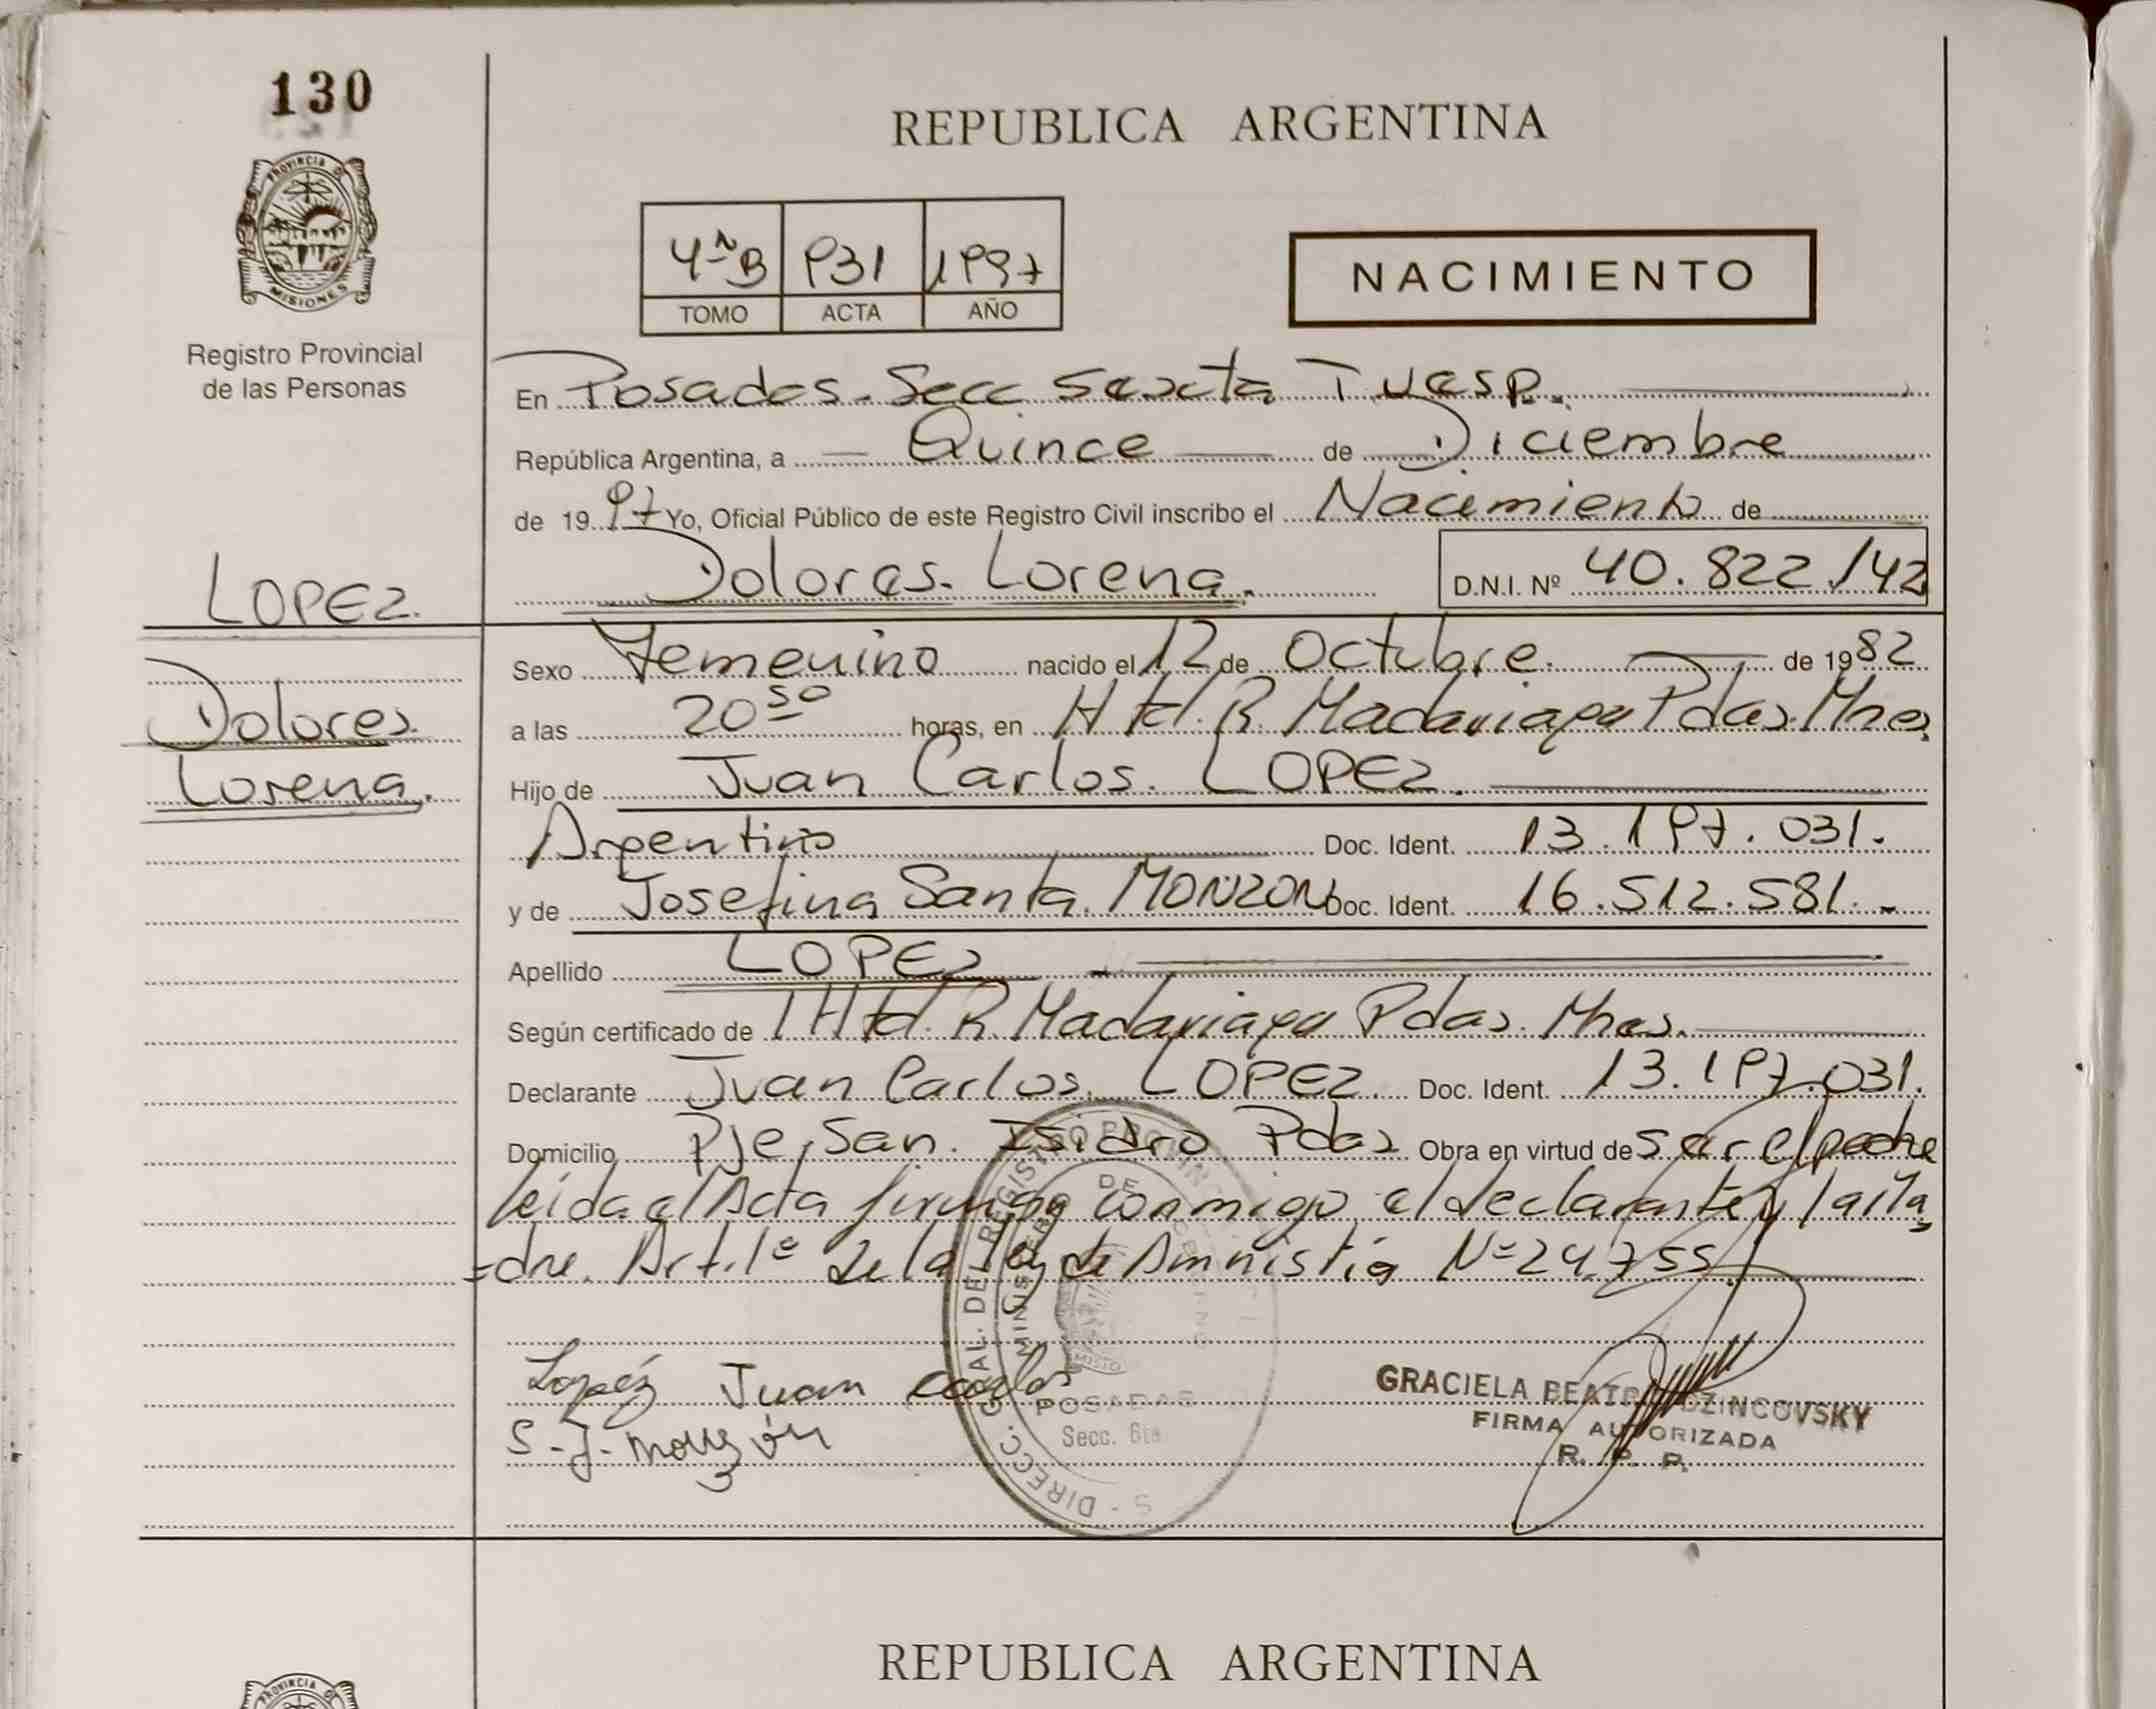 130
PROVINCIA D
MISIONES
Registro Provincial
de las Personas
REPUBLICA ARGENTINA
4ª B 931 1997
TOMO ACTA AÑO
NACIMIENTO
En Posadas. Secc Sexta
República Argentina, a Quince de Diciembre
de 1997 Yo, Oficial Público de este Registro Civil inscribo el Nacimiento de
LOPEZ.
Dolores. Lorena. D.N.I. Nº 40.822.142
Dolores
Lorena.
Sexo Femenino nacido el 12 de Octubre. de 1982
a las 20 50 horas, en R. Madariaga Pdas. Mnes.
Hijo de Juan Carlos. LOPEZ.
Argentino Doc. Ident. 13.197.031.
y de Josefina Santa. MONZON Doc. Ident. 16.512.581.-
Apellido LOPEZ
Según certificado de R. Madariaga Pdas. Mnes.
Declarante Juan Carlos. LOPEZ. Doc. Ident. 13.197.031.
Domicilio Pje, San. Isidro Pdas Obra en virtud de ser el padre
leida el Acta firman conmigo el declarante y la Ma
=dre. Art. 1º de la ley de Amnistía Nº 24.755.
Lopéz Juan Carlos
S-J-Monzón
DIRECC. GRAL. DEL REGISTRO PROVIN
MINISTERIO DE GOBIERNO
POSADAS
Secc. 6ta
GRACIELA BEATRI DZINCOVSKY
FIRMA AUTORIZADA
R. P. P.
REPUBLICA ARGENTINA
PROVINCIA D